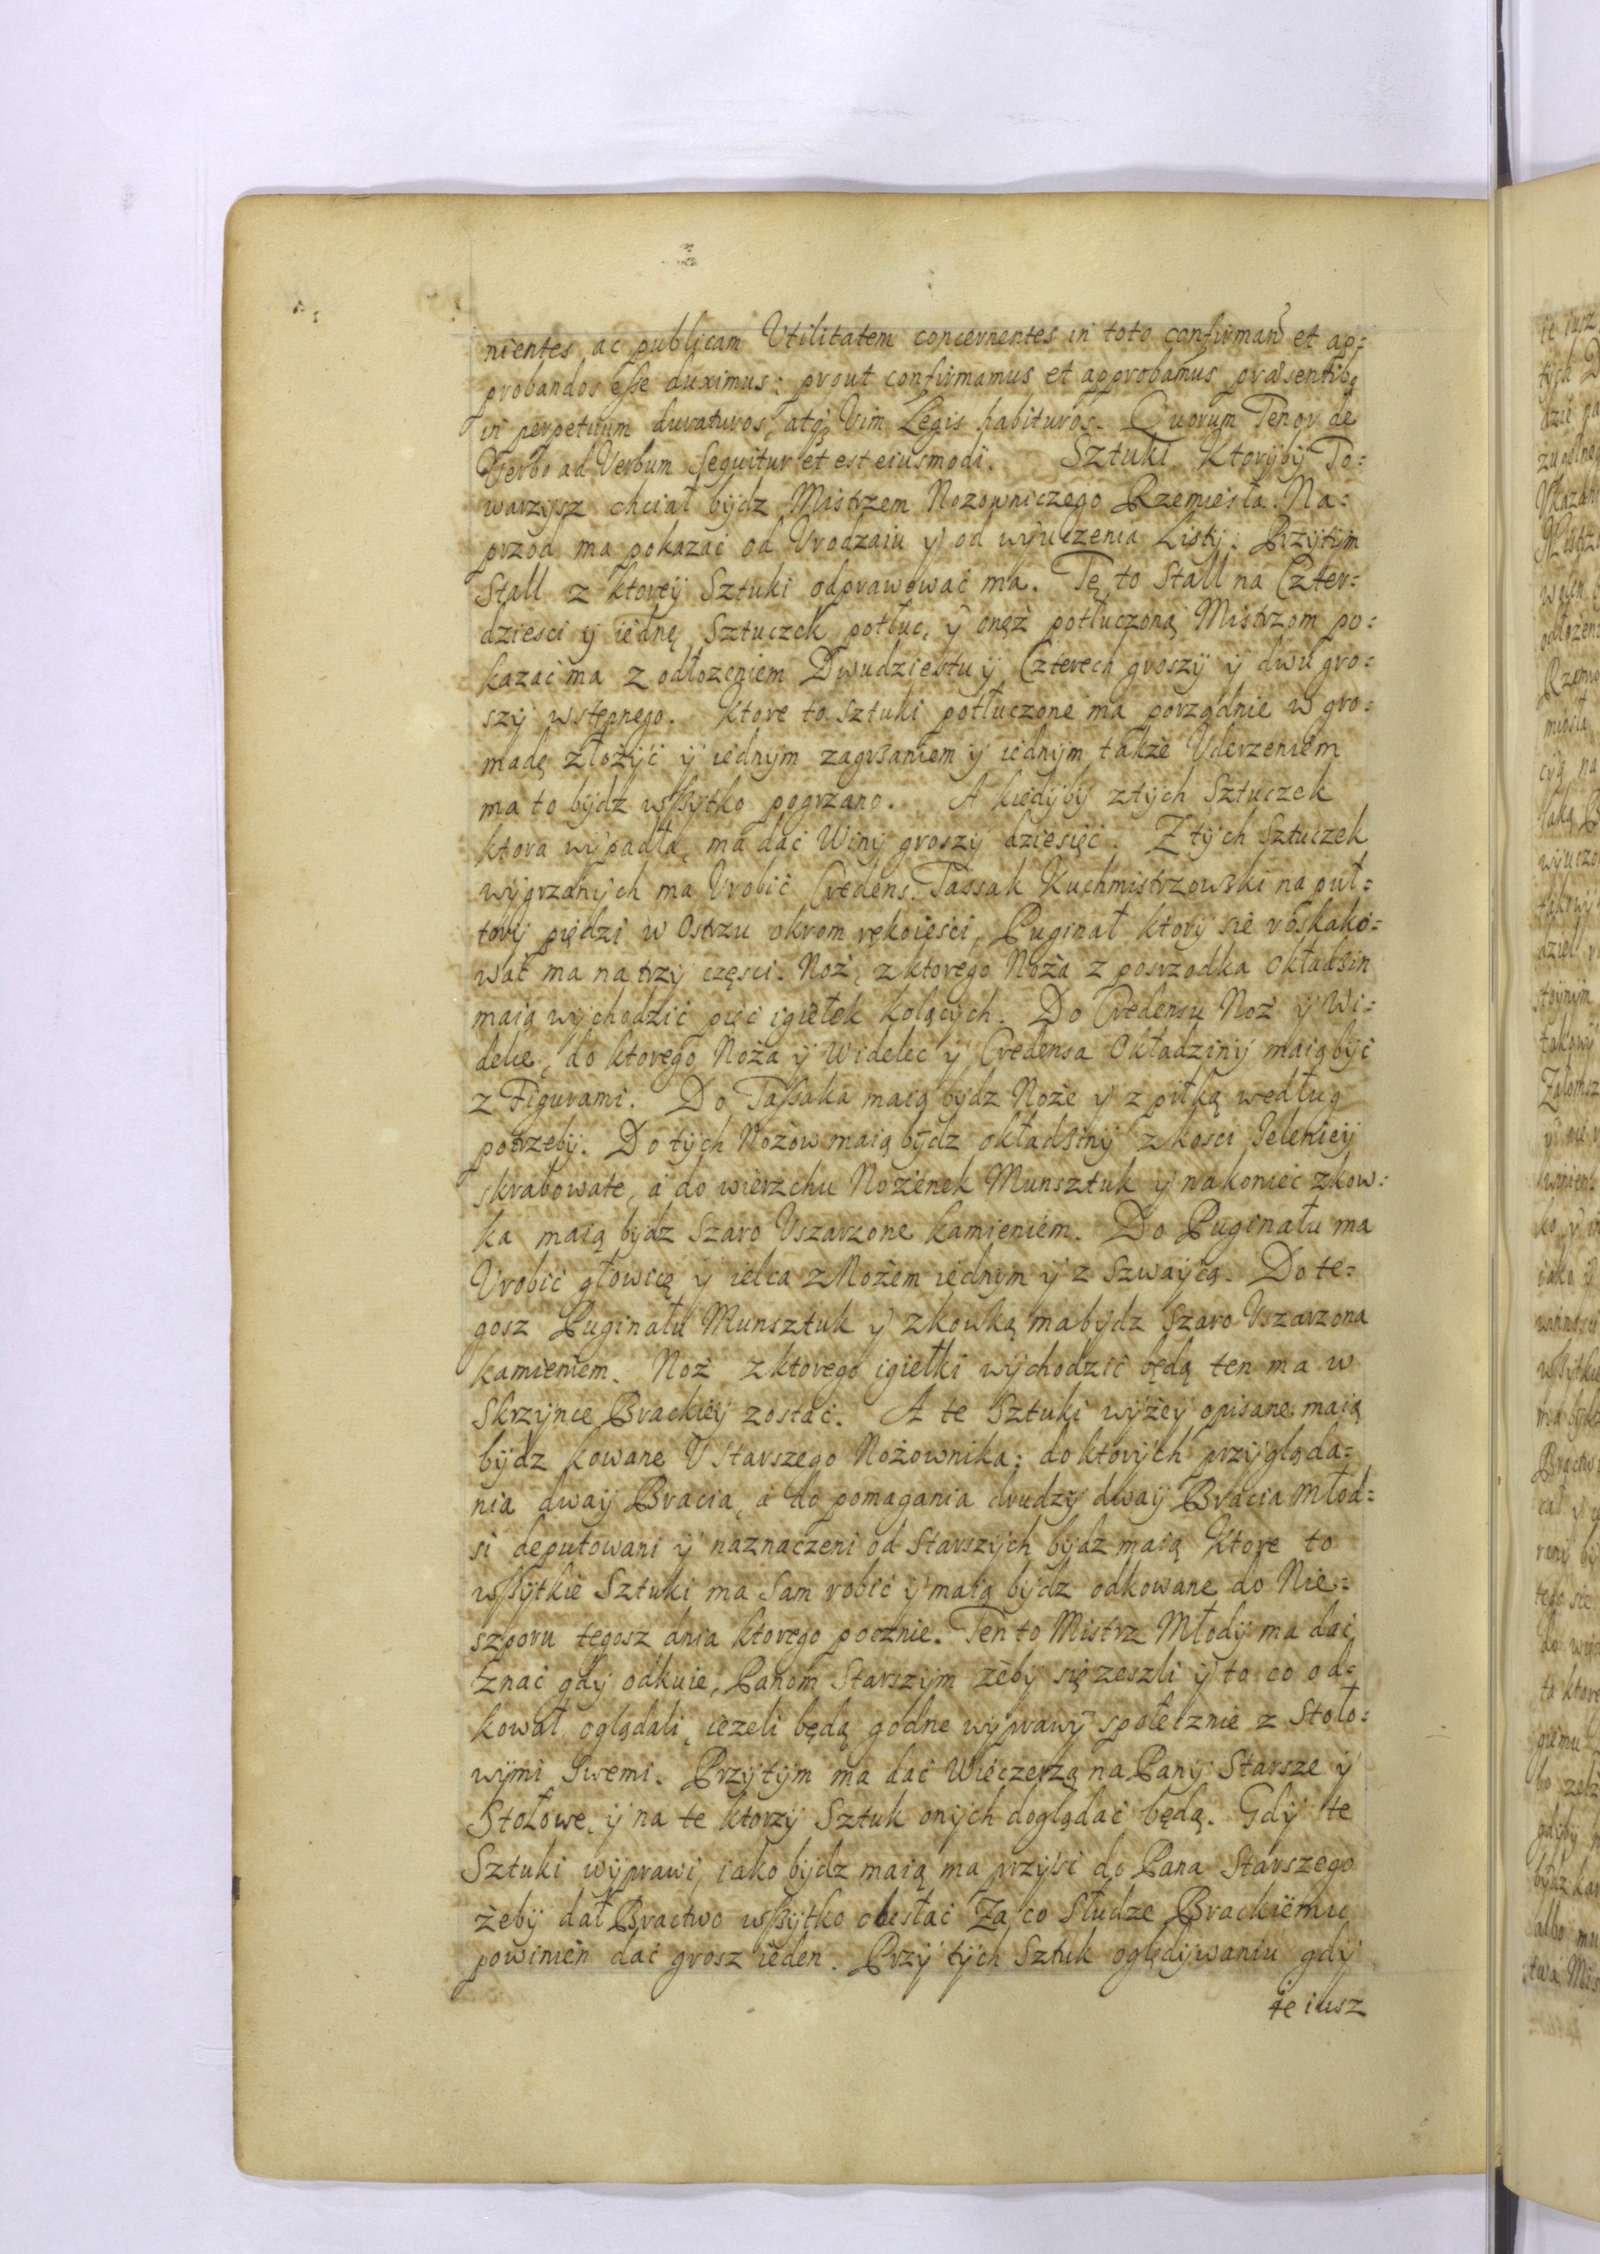 nientes, ac publicam Vtilitatem concernentes in toto confirman̄ et ap=
probandos esse duximus: prout confirmamus et approbamus præsentibꝫ
in perpetuum duraturos, atqꝫ Vim Legis habituros. Quorum Tenor de
Verbo ad Verbum sequitur et est eiusmodi. Sztuki Ktoryby To=
warzysz chciał bydz Mistrzem Nozowniczego Rzemiesła. Na=
przod ma pokazać od Vrodzaiu y od wyuczenia Listy: Przytym
Stall z ktorey Sztuki odprawować ma. Tę to Stall na Czter=
dziesci y iednę Sztuczek potłuc, y onęż potłuczoną Mistrzom po=
kazać ma z odłożeniem Dwudziestu y Czterech groszy y dwu gro=
szy wstępnego. Ktore to sztuki potłuczone ma porządnie w gro=
madę złożyć y iednym zagrzaniem y iednym także Vderzeniem
ma to bydz wszytko pogrzano. A kiedyby z tych Sztuczek
ktora wypadła, ma dać Winy groszy dziesięć. Z tych Sztuczek
wygrzanych ma Vrobić Credens. Tassak Kuchmistrzowski na puł=
tory piędzi w Ostrzu okrom rękoieści, Puginał ktory sie roskako=
wać ma na trzy częsci. Noż, z ktorego Noża z posrzodka okładzin
maią wychodzić pięć igiełek kolących. Do Credensu Noż y Wi=
delce, do ktorego Noża y Widelec y Credensa Okładziny maią być
z Figurami. Do Tassaka maią bydz Noże y z piłką według
potrzeby. Do tych Nożow maią bydz okładziny z kosci Ieleniey
skrabowate, a do wierzchu Nożenek Munsztuk y nakoniec zkow=
ka maią bydz Szaro Vszarzone kamieniem. Do Puginału ma
Vrobić głowicę y ielca z Nożem iednym y z Szwaycą. Do te=
gosz Puginału Munsztuk y zkowką ma bydz Szaro Vszarzona
kamieniem. Noż z ktorego igiełki wychodzić będą ten ma w
Skrzynce Brackiey zostać. A te Sztuki wyżey opisane maią
bydz kowane V Starszego Nożownika: do ktorych przygląda=
nia dway Bracia, a do pomagania drudzy dway Bracia Młod=
si deputowani y naznaczeni od Starszych bydz maią Ktore to
wszytkie Sztuki ma Sam robić y maią bydz odkowane do Nie=
szporu tegosz dnia ktorego pocznie. Ten to Mistrz Młody ma dać
znać gdy odkuie, Panom Starszym żeby się zeszli y to co od=
kował oglądali, ieżeli będą godne wyprawy społecznie z Stoło=
wymi Swemi. Przytym ma dać Wieczerzą na Pany Starsze y
Stołowe, y na te ktorzy Sztuk onych doglądać będą. Gdy te
Sztuki wyprawi, iako bydz maią ma przysi do Pana Starszego
żeby dał Bractwo wszytko obesłać Za co Słudze Brackiemu
powinien dać grosz ieden. Przy tych Sztuk oglądywaniu gdy
ie iusz